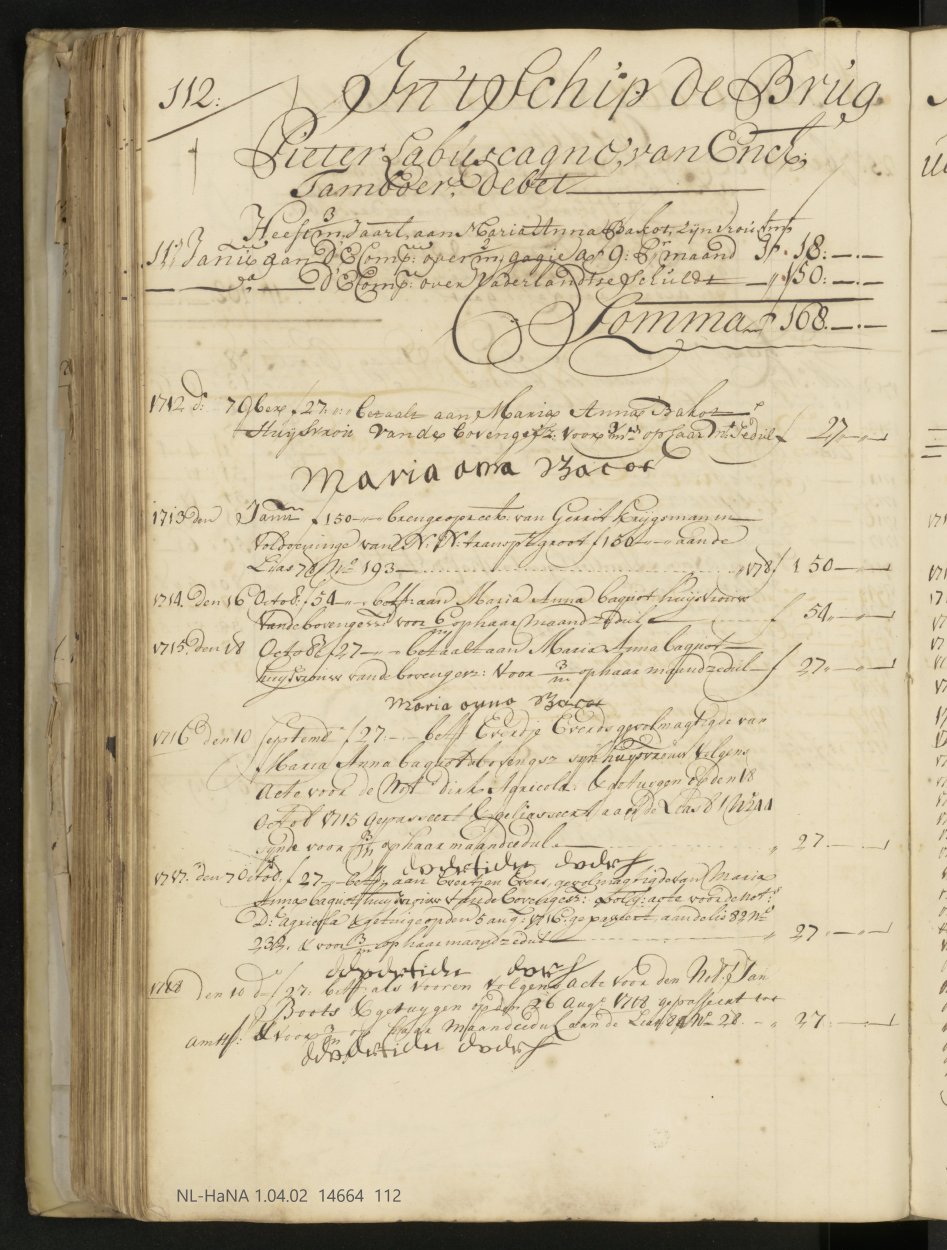 112:
In't Schip de Brug
Pieter Labuscagne, van Enck
Tamboer. Debet
Heeft 3/m Jaarl. aan Maria Anna Bakot, zijn vrou
11 Janu aan D'E Comp: over 2/m gagie a f 9: Pr maand f 18:—.—
— da — D'E Comp: over Vaderlandtse Schult — " 150:—.—
Somma f 168.—.—
1712 d: 7 9ber f 27:"—: betaalt aan Maria Anna Bakot
Huijsvrou vande bovengesz: voor 3/m op haar Mt Cedul f 27,,—,,—
Maria ana Bacot
1713 den Janu f 150—,,— brengeopreek: van Gerrit Krijgsman in
voldoeninge vant N: N: transpt groot f 150—,,— aan de
Lias 70 No 193 — 178 f 150—,,—
1714 den 16 Octob: f 54—,,— bett aan Maria Anna baquot huijsvrouw
vande bovengesz: voor 6/m op haar maand Cedul f 54,,—,,—
1715: den 18 Octob f 27—,,— betaalt aan Maria Anna baquot
huijsvrouw vande bovengesz: voor 3/m op haar maandzedul f 27,,—,,—
Maria anna Bacot
1716 den 10 Septemb f 27.—.— bett Evertje Everts gevolmagtigde van
Maria Anna baquot bovengsz syn huysvrouw volgens
Acte voor de Not: Dirk Agricola, & getuygen op den 18
Octob 1715 gepasseert & geliasseert aan de Lias 81 No 244
synde voor 3/m op haar maandcedul " 27.—.—
1717: den 7 Octob: f 27—,,— bett: aan Evertjen Evers, gevolmagtigde van Maria
Anna baquot huijsvrouw vande bovengesz: volg: acte voor de Not:
D: Agricola & getuige op den 5 aug: 1716 gepasseert, aan de lias 82 No
232. & voor 3/m op haar maandzedul " 27.—.—
1718 den 10 do f 27: bett: als vooren volgens Acte voor den Not: Jan
Boots & getuygen op den 26 Augs 1718 gepasseert tot
Amst: & voor 3/m op haar Maandcedul aan de Lias 84 No 28. — " 27.—.—
NL-HaNA 1.04.02 14664 112